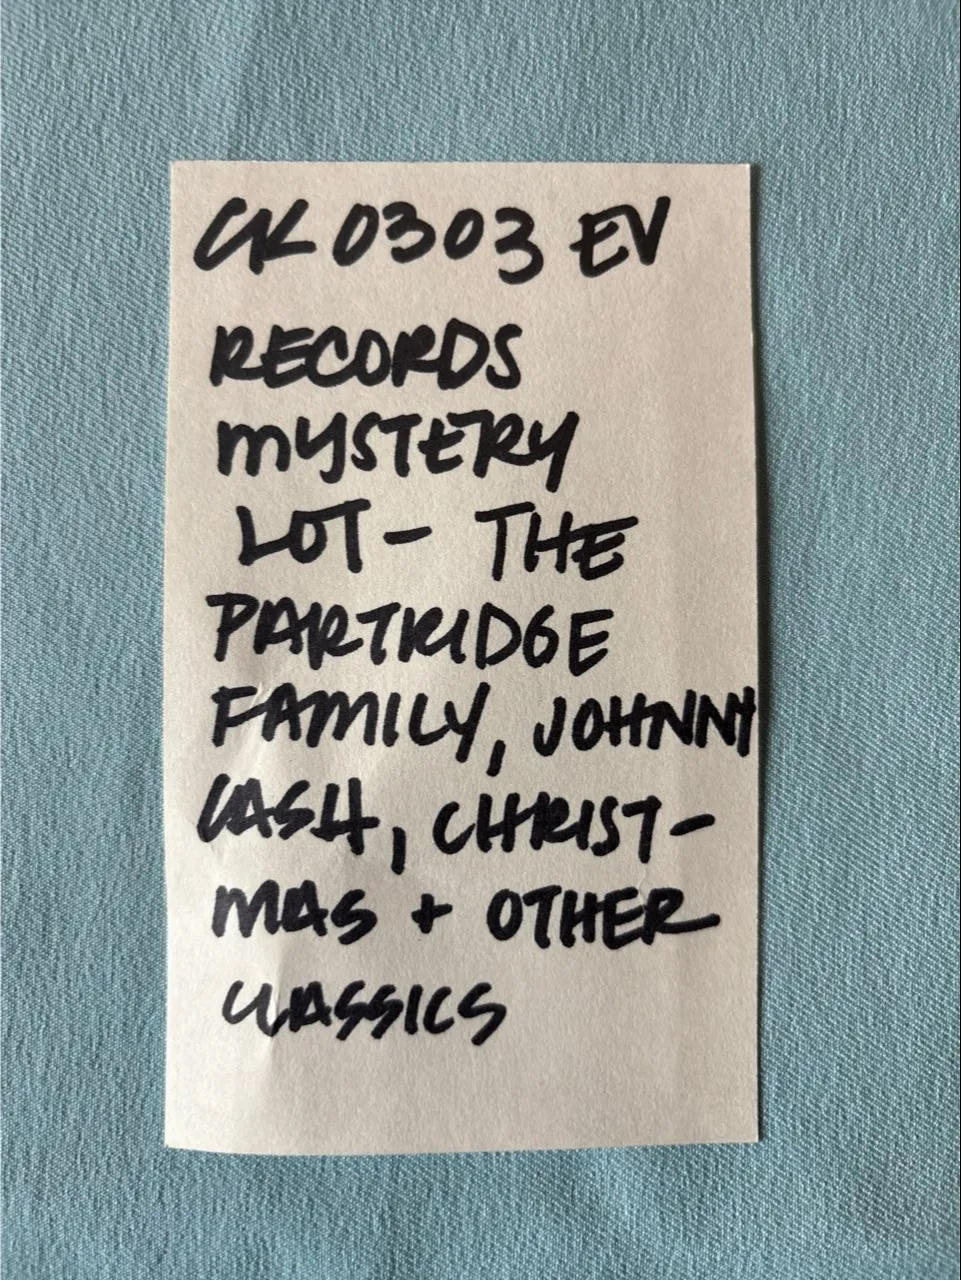 CK 0303 EV
RECORDS
MYSTERY
LOT - THE
PARTRIDGE
FAMILY, JOHNNY
CASH, CHRIST-
MAS + OTHER
CLASSICS